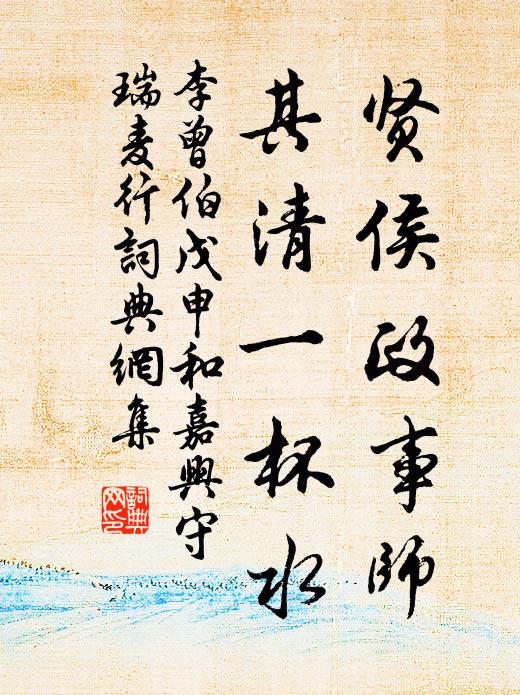 贤侯政事师
其清一杯水
李曾伯戊申和嘉興守
瑞麦行詞典網集
詞典
网印